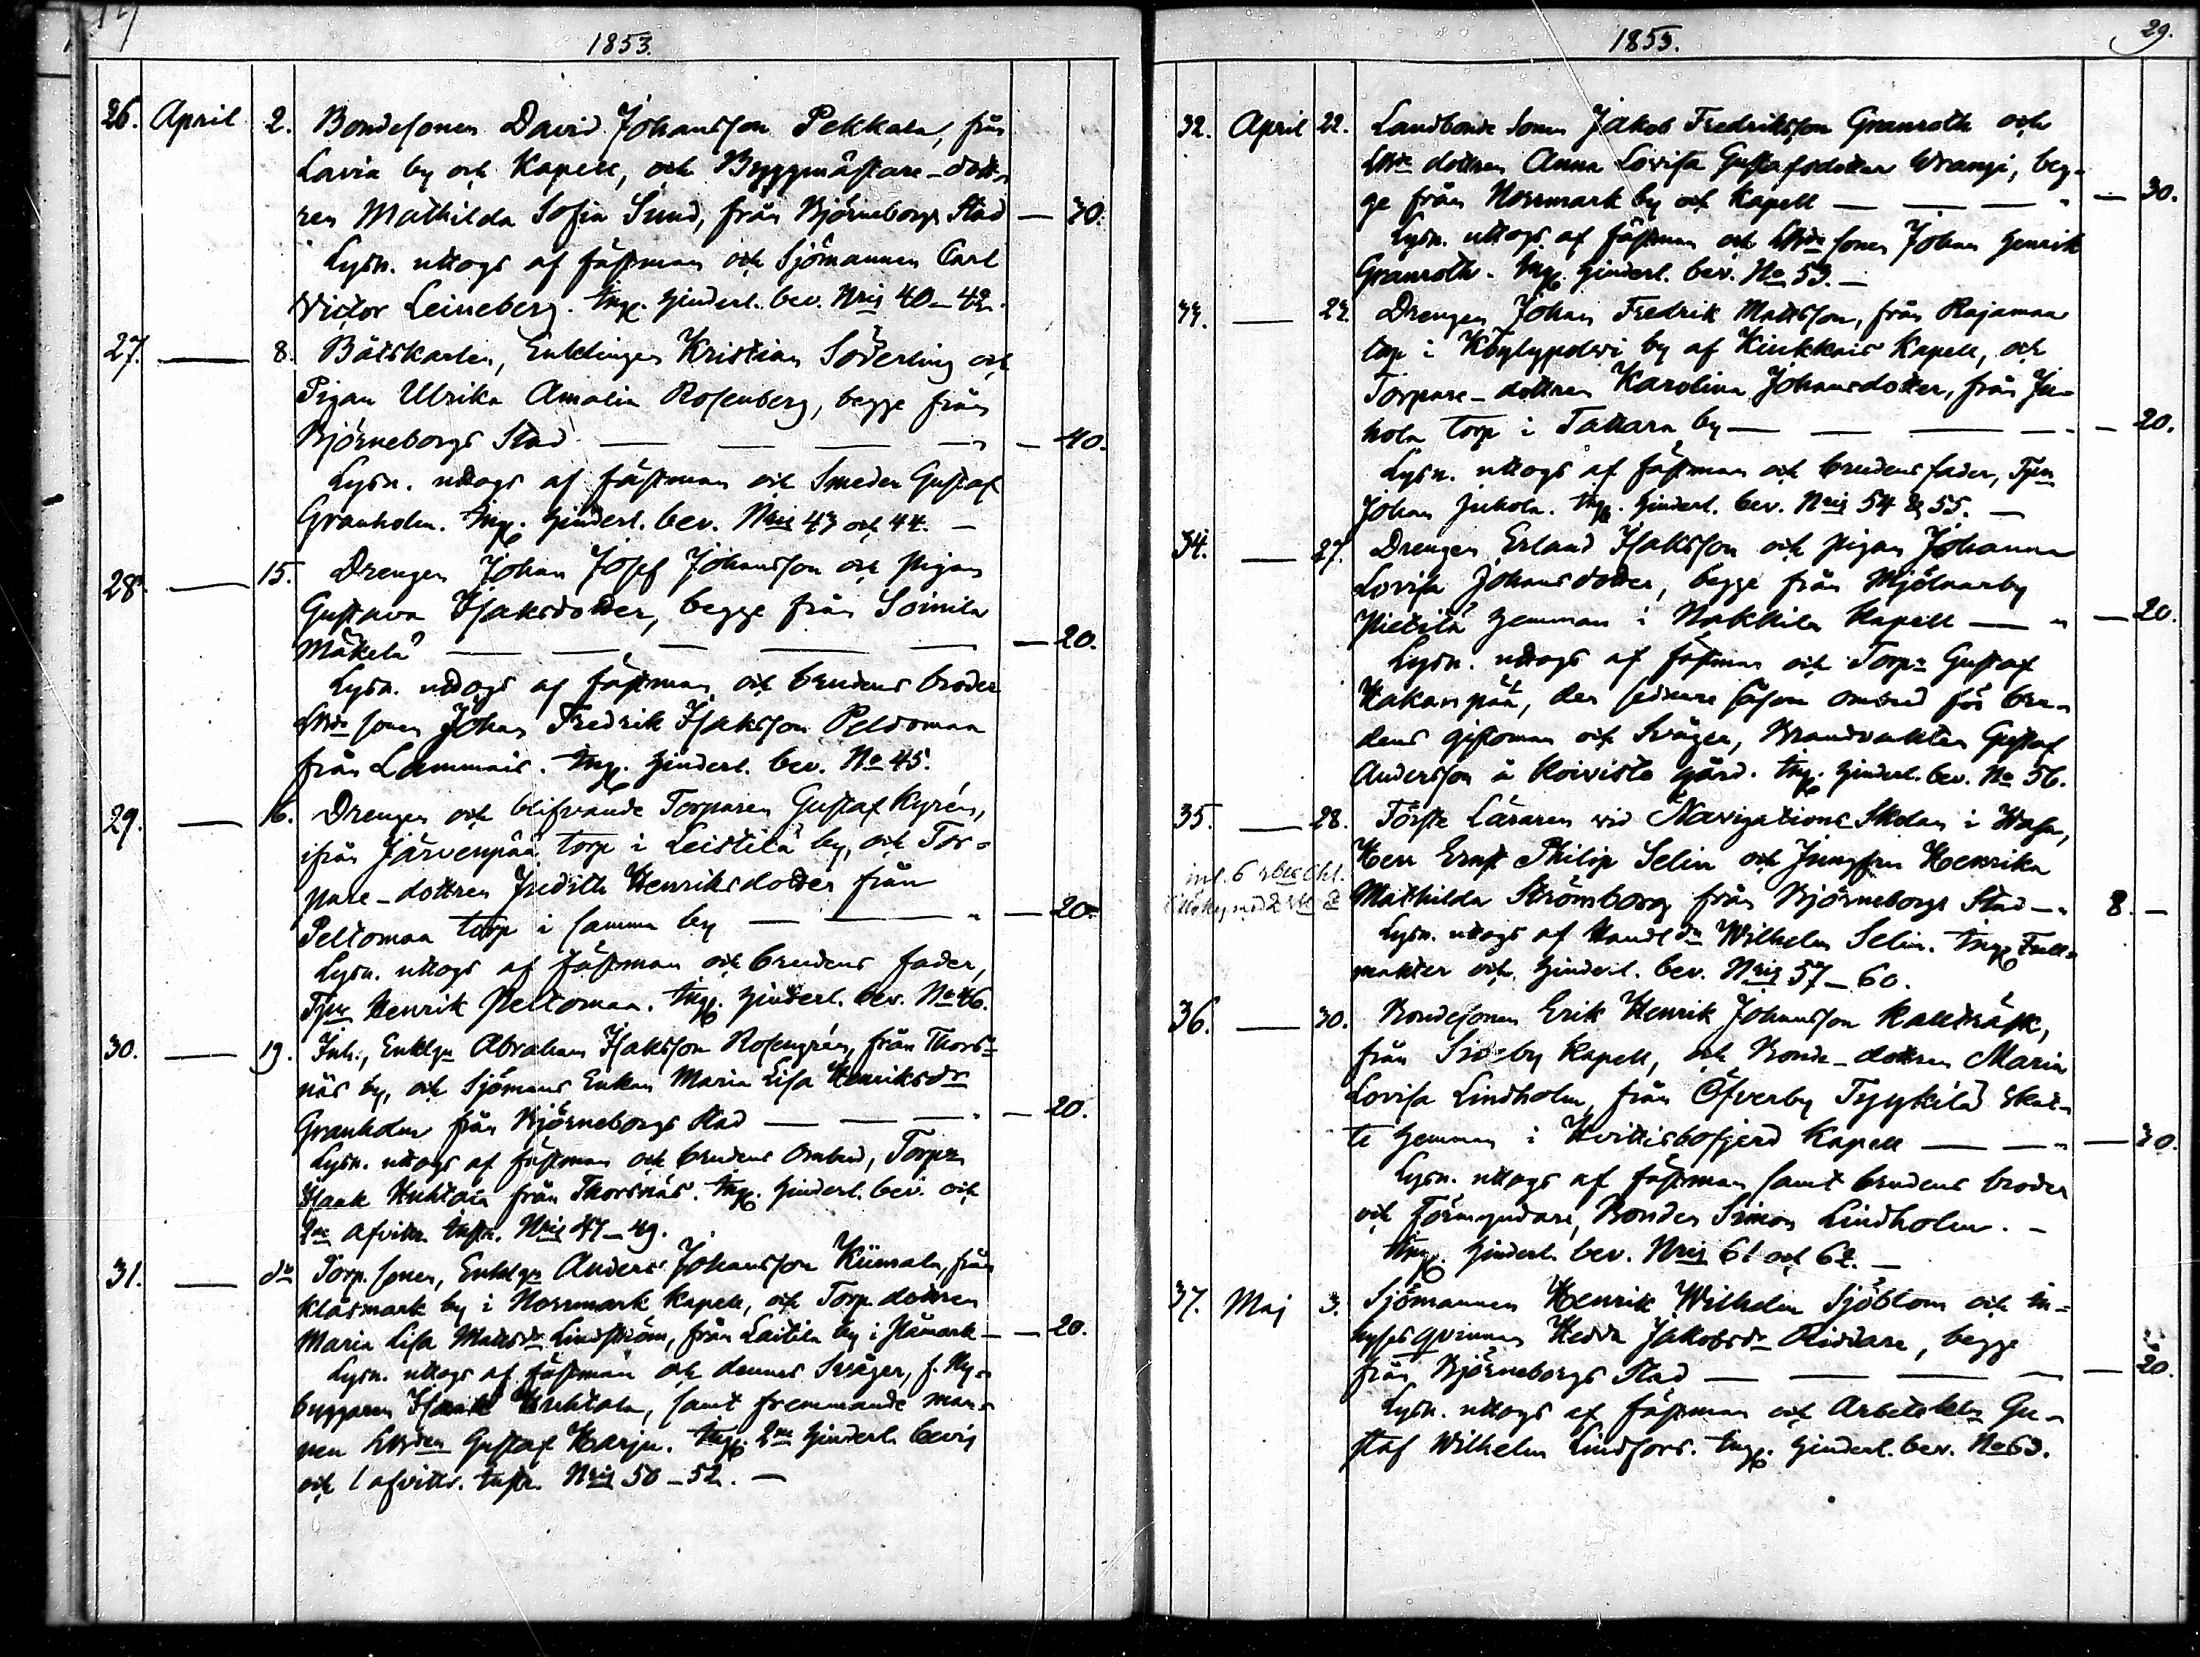 1853.
26. April 2. Bondesonen David Johansson Pekkala, från
Lavia by och Kapell, och Byggmästare-dott-
ren Mathilda Sofia Sund, från Björneborgs Stad — 30.
Lysn. uttogs af fästman och Sjömannen Carl
Victor Leineberg. Ing. hinderl. bev. Nris 40-42.
27. — 8. Båtskarlen, Enklingen Kristian Söderling och
Pigan Ulrika Amalia Rosenberg, begge från
Björneborgs Stad — — — — 40.
Lysn. uttogs af fästman och Smeden Gustaf
Granholm. Ing. hinderl. bev. Nris 43 och 44. —
28. — 15. Drengen Johan Josef Johansson och pigan
Gustava Isaksdotter, begge från Soinila
Mäkelä — — — — — 20.
Lysn. uttogs af fästman och brudens broder
sonen Johan Fredrik Isaksson Peldomaa
från Lammais. Ing. hinderl. bev. No 45.
29. — 16. Drengen och blifvande Torparen Gustaf Kyrén,
ifrån Järvenpää torp i Leistilä by, och Tor-
pare-dottren Judith Henriksdotter från
Peltomaa torp i samma by — — — 20.
Lysn. uttogs af fästman och brudens fader,
Tpn Henrik Peltomaa. Ing. hinderl. bev. No 46.
30. — 19. Inh., Enklgn Abraham Isaksson Rosengrén, från Thors-
näs by, och Sjömans Enkan Maria Lisa Henriksdr
Granholm från Björneborgs Stad — — — 20.
Lysn. uttogs af fästman och brudens Ombud, Torpn
Isaak Huhtala från Thorsnäs. Ing. hinderl. bev. och
2ne afvittr. instr. Nris 47-49.
31. — do Torp. sonen, Enklgn Anders Johansson Kiimala, från
Klåsmark by i Norrmark Kapell, och Torp. dottren
Maria Lisa Mattsdr Lindström, från Laitila by i Påmark — 20.
Lysn. uttogs af fästman och dennes Svåger, f. Ny-
byggaren Isaak Huhtala, samt fremmande man-
nen Gustaf Harju. Ing. 2ne hinderl. bevis
och 1 afvittr. instr. Nris 50-52. —
1853. 29.
32. April 22. Landbonde Sonen Jakob Fredriksson Granroth och
dottren Anna Lovisa Gustafsdotter Wrangi, beg-
ge från Norrmark by och Kapell — — — — 30.
Lysn. uttogs af fästman och sonen Johan Henrik
Granroth. Ing. hinderl. bev. No 53. —
33. — 23. Drengen Johan Fredrik Mattsson, från Rajamaa
torp i Köylypolvi by af Kiukkais Kapell, och
Torpare-dottren Karolina Johansdotter, från Ju-
hola torp i Tattara by — — — — 20.
Lysn. uttogs af fästman och brudens fader, Tpn
Johan Juhola. Ing. hinderl. bev. Nris 54 & 55. —
34. — 27. Drengen Erland Isaksson och pigan Johanna
Lovisa Johansdotter, begge från Mjölnarby
Pietilä hemman i Nakkila Kapell — — 20.
Lysn. uttogs af fästman och Torpn Gustaf
Hakanpää, den sednare såsom ombud för bru-
dens giftoman och Svåger, Brandvakten Gustaf
Andersson å Koivisto gård. Ing. hinderl. bev. No 56.
35. — 28. Förste Läraren vid Navigations Skolan i Wasa,
Herr Ernst Philip Selin och Jungfru Henrika
Mathilda Strömborg från Björneborgs Stad — 8. —
Lysn. uttogs af Wilhelm Selin. Ing. Full-
makter och hinderl. bev. Nris 57-60.
36. — 30. Bondesonen Erik Henrik Johansson Kallträsk,
från Sideby Kapell, och Bonde-dottren Maria
Lovisa Lindholm, från Öfverby Tyykilä Skat-
te hemman i Hvittisbofjerd Kapell — — 30.
Lysn. uttogs af fästman samt brudens broder
och Förmyndare, Bonden Simon Lindholm. —
Ing. hinderl. bev. Nris 61 och 62. —
37. Maj 3. Sjömannen Henrik Wilhelm Sjöblom och in-
hysesqvinnan Hedda Jakobsdr Riddare, begge
från Björneborgs Stad — — — — 20.
Lysn. uttogs af fästman och Arbetskln Gu-
staf Wilhelm Lindfors. Ing. hinderl. bev. No 63.